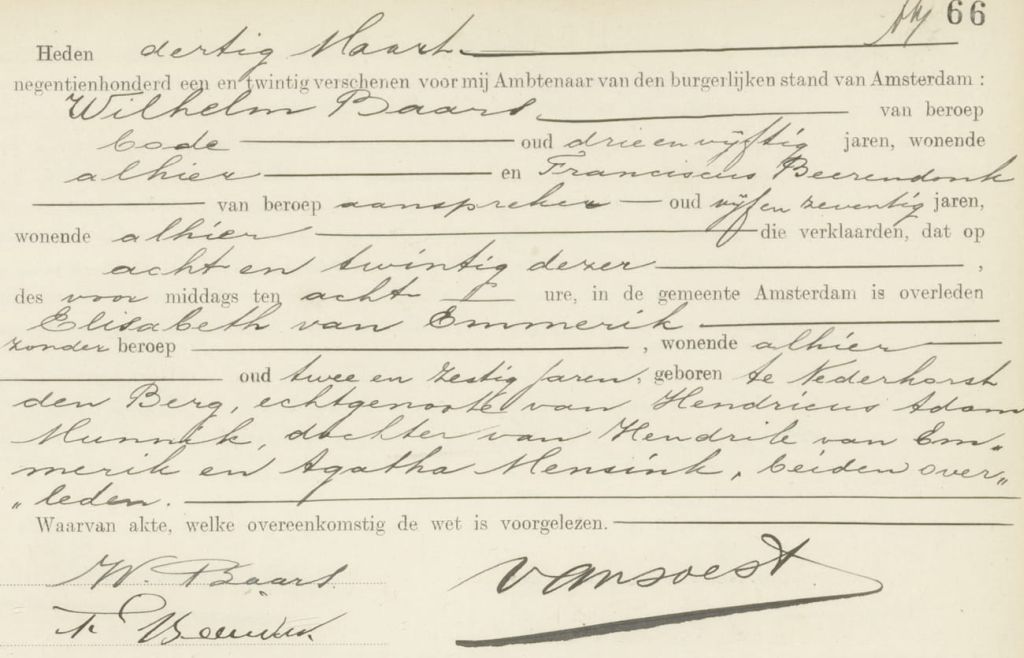 66
Heden dertig Maart
negentienhonderd een en twintig verschenen voor mij Ambtenaar van den burgerlijken stand van Amsterdam :
Wilhelm Baars, van beroep
bode oud drie en vijftig jaren, wonende
alhier en Franciscus Beerendonk
van beroep aanspreker oud vijf en zeventig jaren,
wonende alhier die verklaarden, dat op
acht en twintig dezer ,
des voor middags ten acht ure, in de gemeente Amsterdam is overleden
Elisabeth van Emmerik
zonder beroep , wonende alhier
oud twee en zestig jaren, geboren te Nederhorst
den Berg, echtgenoote van Hendricus Adam
Munnik, dochter van Hendrik van Em„
merik en Agatha Mensink, beiden over„
„leden.
Waarvan akte, welke overeenkomstig de wet is voorgelezen.
W. Baars
van Soest